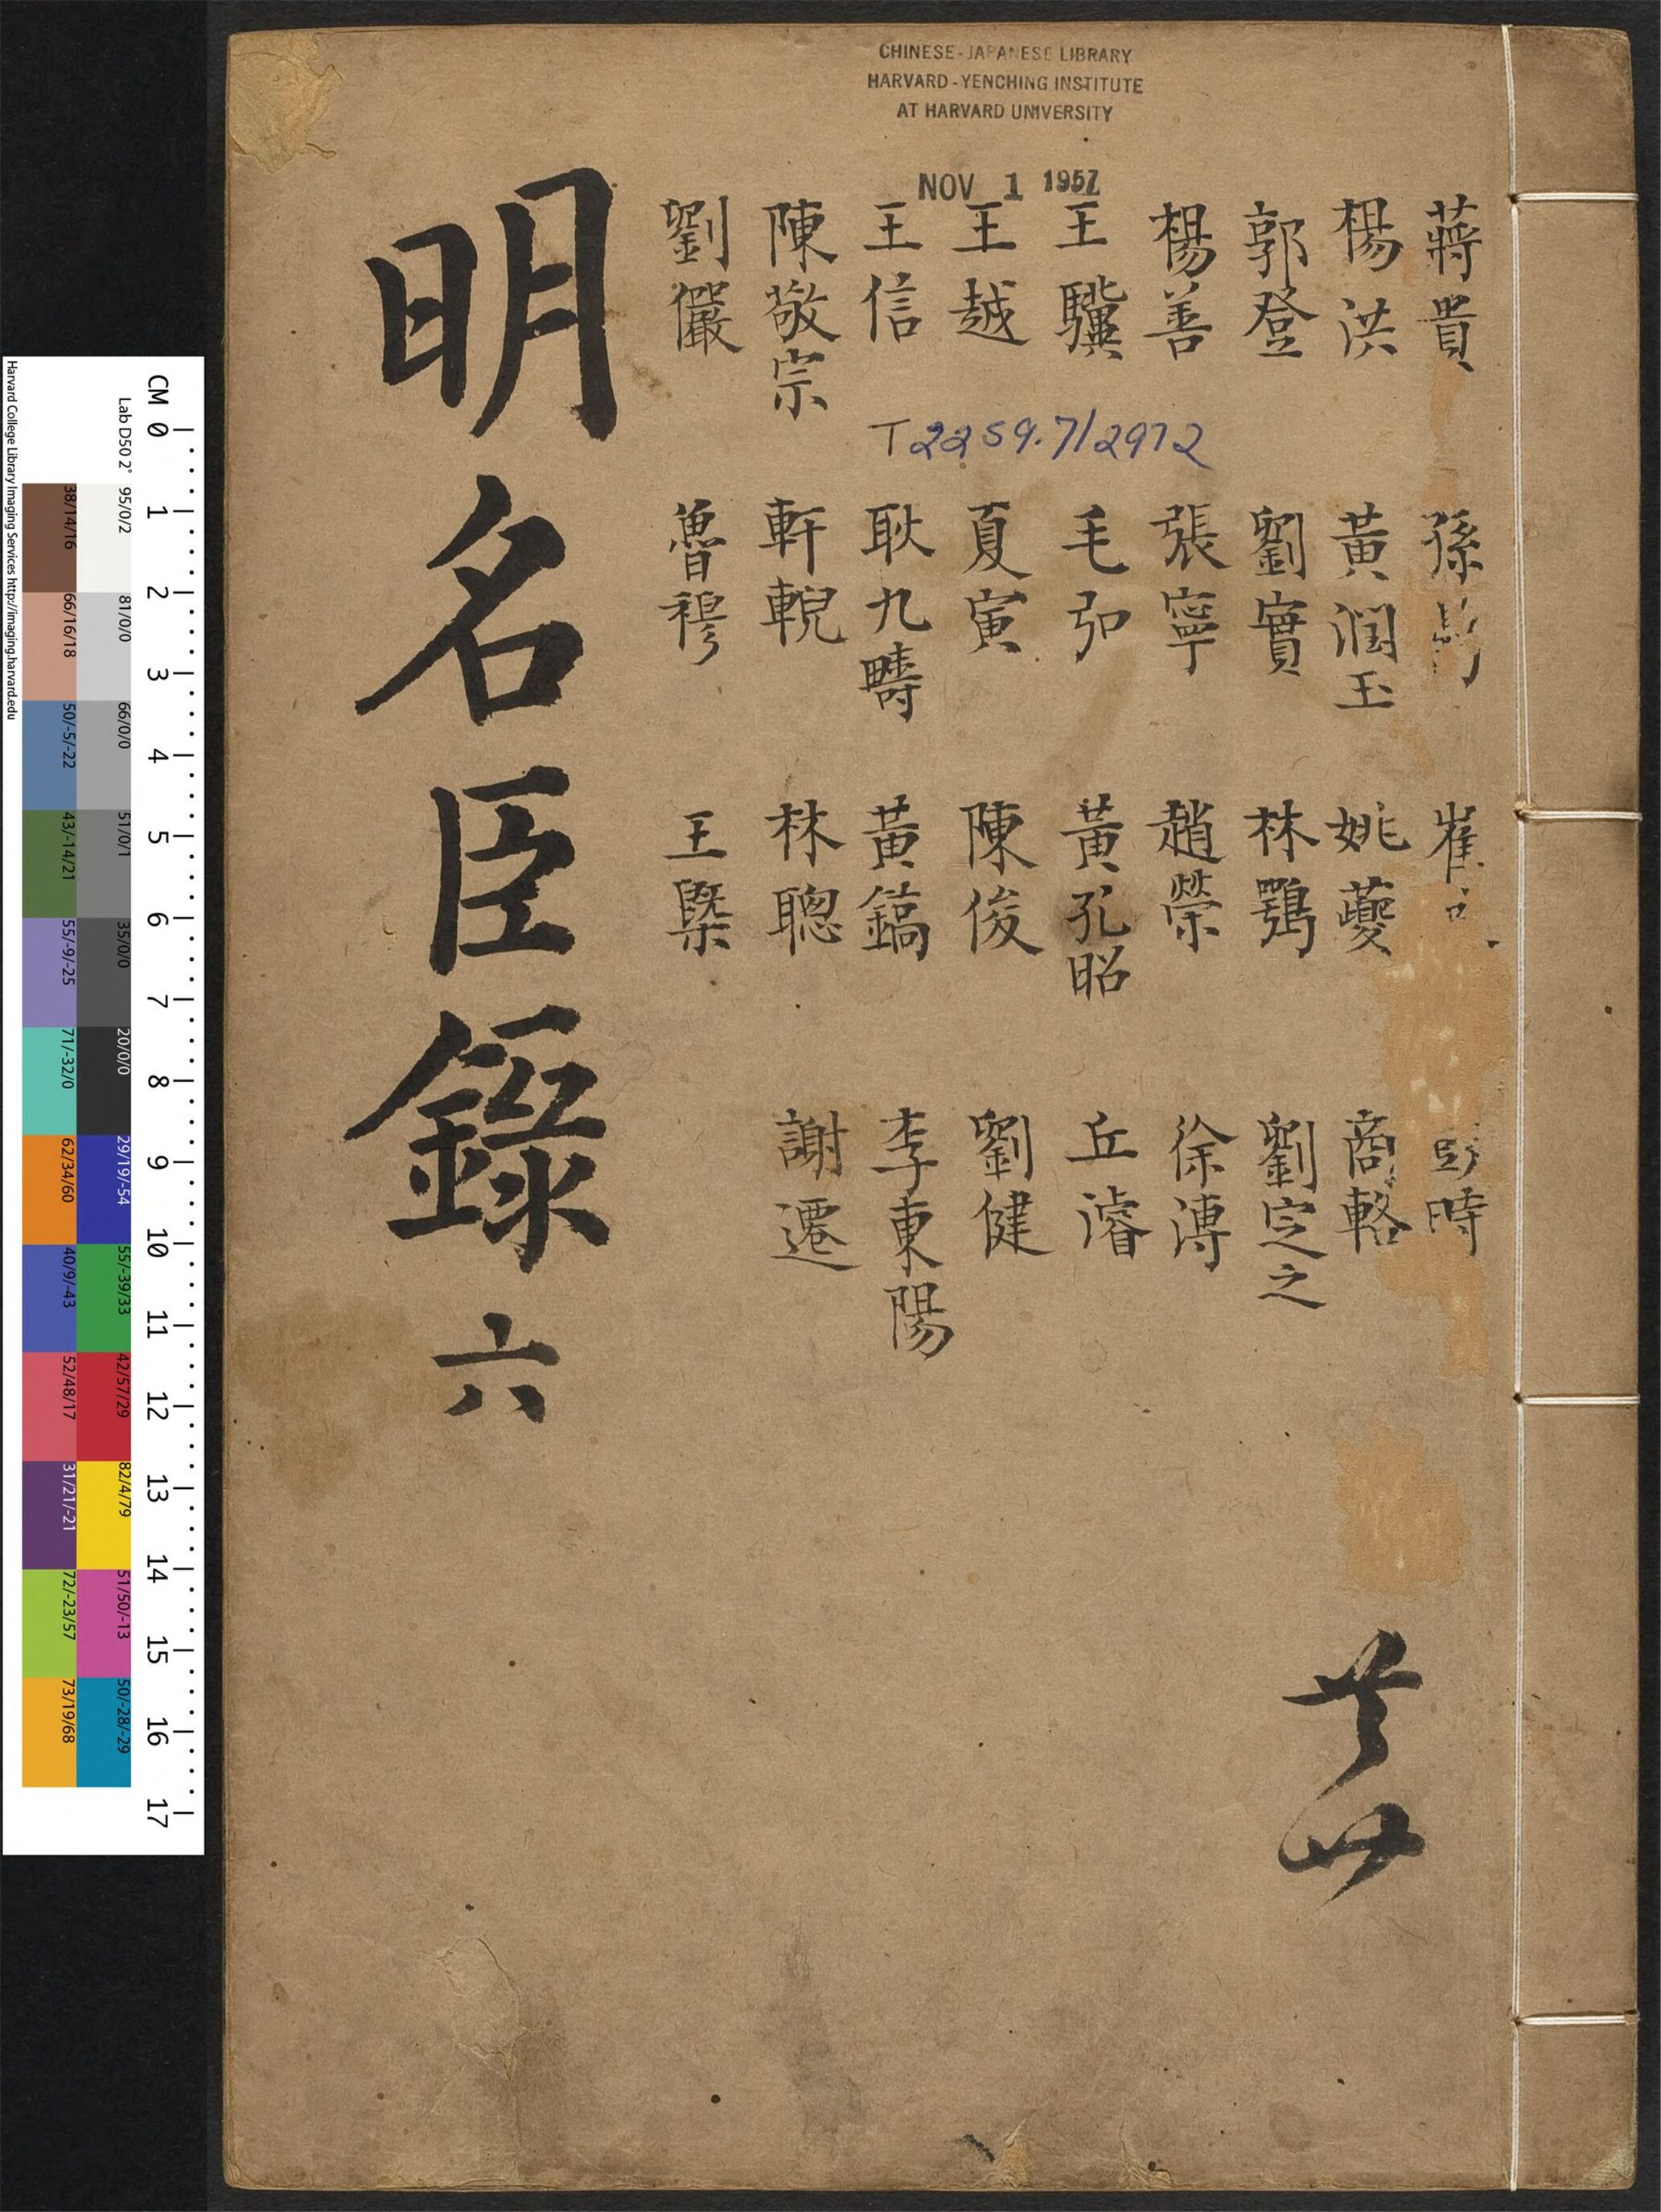 CHINESE-JAPANESE LIBRARY
HARVARD-YENCHING INSTITUTE
AT HARVARD UNIVERSITY
NOV 1 1957
蔣貴
楊洪
郭登
楊善
王驥
王越
王信
陳敬宗
劉儼
T2259.7/2972
孫
黃潤玉
劉實
張寧
毛弘
夏寅
耿九疇
軒輗
魯穆
崔
姚夔
林鶚
趙榮
黃孔昭
陳俊
黃鎬
林聰
王槩
彭時
商輅
劉定之
徐溥
丘濬
劉健
李東陽
謝遷
明名臣錄 六
CM 0 1 2 3 4 5 6 7 8 9 10 11 12 13 14 15 16 17
Lab D50 2° 95/0/2 81/0/0 66/0/0 51/0/1 35/0/0 20/0/0 29/19/-54 55/-39/33 42/57/29 82/4/79 51/50/-13 50/-28/-29
38/14/16 66/16/18 50/-5/-22 43/-14/21 55/-9/-25 71/-32/0 62/34/60 40/9/-43 52/48/17 31/21/-21 72/-23/57 73/19/68
Harvard College Library Imaging Services http://imaging.harvard.edu